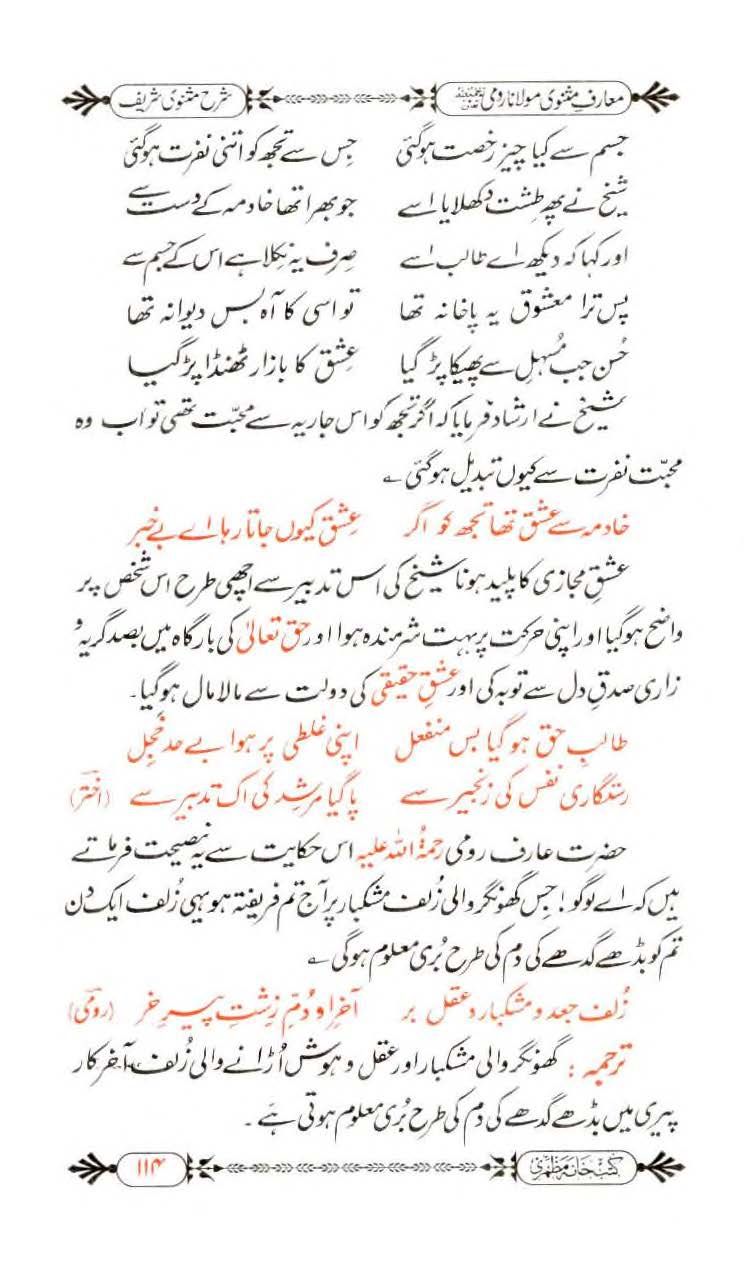 معارفِ مثنوی مولانا رومی رحمۃ اللہ علیہ شرح مثنوی شریف
جسم سے کیا چیز رخصت ہوگئی جِس سے تجھ کو اتنی نفرت ہوگئی
شیخ نے پھر طشت دکھلایا اسے جو بھرا تھا خادمہ کے دست سے
اور کہا کہ دیکھ اے طالب اسے صِرف یہ نِکلا ہے اس کے جسم سے
پس ترا معشوق یہ پاخانہ تھا تو اسی کا آہ بس دیوانہ تھا
حُسن جب مُسہل سے پھیکا پڑ گیا عِشق کا بازار ٹھنڈا پڑ گیا
شیخ نے ارشاد فرمایا کہ اگر تجھ کو اس جاریہ سے محبّت تھی تو اَب وہ
محبّت نفرت سے کیوں تبدیل ہوگئی ؎
خادمہ سے عشق تھا تجھ کو اگر عِشق کیوں جاتا رہا اے بے خبر
عشقِ مجازی کا پلید ہونا شیخ کی اس تدبیر سے اچھی طرح اس شخص پر
واضح ہوگیا اور اپنی حرکت پر بہت شرمندہ ہوا اور حق تعالیٰ کی بارگاہ میں بصد گریہ و
زاری صدقِ دل سے توبہ کی اور عشقِ حقیقی کی دولت سے مالا مال ہوگیا۔
طالبِ حق ہو گیا بس منفعل اپنی غلطی پر ہوا بے حد خجِل
رستگاری نفس کی زنجیر سے پاگیا مرشِد کی اک تدبیر سے (اختر)
حضرت عارف رومی رحمۃُ اللہ علیہ اس حکایت سے یہ نصیحت فرماتے
ہیں کہ اے لوگو! جِس گھونگر والی زُلف مشکبار پر آج تم فریفتہ ہو یہی زُلف ایک دن
تم کو بڈھے گدھے کی دم کی طرح بُری معلوم ہوگی ؎
زُلف جعد و مشکبار و عقل بر آخرِ او دُمِّ زِشتِ پیر خر (رومی)
ترجمہ : گھونگر والی مشکبار اور عقل و ہوش اُڑانے والی زُلف آخرکار
پیری میں بڈھے گدھے کی دم کی طرح بُری معلوم ہوتی ہے ۔
کتب خانہ مظہری ۱۱۴